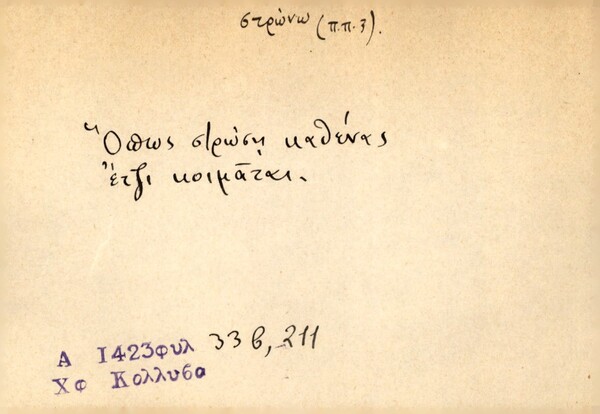 στρώνω (π.π.3).
Ὅπως στρώσῃ καθένας
ἔτζι κοιμᾶται.
Α 1423φυλ 33β, 211
Χφ Κολλυβα